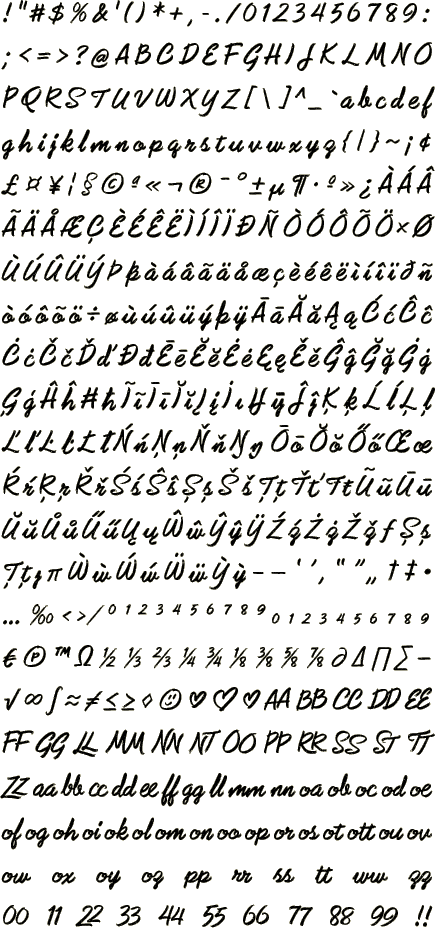 ! " # $ % & ' ( ) * + , - . / 0 1 2 3 4 5 6 7 8 9 :
; < = > ? @ A B C D E F G H I J K L M N O
P Q R S T U V W X Y Z [ \ ] ^ _ ` a b c d e f
g h i j k l m n o p q r s t u v w x y z { | } ~ ¡ ¢
£ ¤ ¥ ¦ § © ª « ¬ ® ¯ ° ± µ ¶ · º » ¿ À Á Â
Ã Ä Å Æ Ç È É Ê Ë Ì Í Î Ï Ð Ñ Ò Ó Ô Õ Ö × Ø
Ù Ú Û Ü Ý Þ þ à á â ã ä å æ ç è é ê ë ì í î ï ð ñ
ò ó ô õ ö ÷ ø ù ú û ü ý þ ÿ Ā ā Ă ă Ą ą Ć ć Ĉ ĉ
Ċ ċ Č č Ď ď Đ đ Ē ē Ĕ ĕ Ė ė Ę ę Ě ě Ĝ ĝ Ğ ğ Ġ ġ
Ģ ģ Ĥ ĥ Ħ ħ Ĩ ĩ Ī ī Ĭ ĭ Į į İ ı Ĳ ĳ Ĵ ĵ Ķ ķ Ĺ ĺ Ļ ļ
Ľ ľ Ŀ ŀ Ł ł Ń ń Ņ ņ Ň ň Ŋ ŋ Ō ō Ŏ ŏ Ő ő Œ œ
Ŕ ŕ Ŗ ŗ Ř ř Ś ś Ŝ ŝ Ş ş Š š Ţ ţ Ť ť Ŧ ŧ Ũ ũ Ū ū
Ŭ ŭ Ů ů Ű ű Ų ų Ŵ ŵ Ŷ ŷ Ÿ Ź ź Ż ż Ž ž ƒ Ș ș
Ț ț π Ẁ ẁ Ẃ ẃ Ẅ ẅ Ỳ ỳ – — ‘ ’ ‚ “ ” „ † ‡ •
… ‰ < > ⁄ 0 1 2 3 4 5 6 7 8 9 0 1 2 3 4 5 6 7 8 9
€ ℗ ™ Ω ½ ⅓ ⅔ ¼ ¾ ⅛ ⅜ ⅝ ⅞ ∂ ∆ ∏ ∑ −
√ ∞ ∫ ≈ ≠ ≤ ≥ ◊ ☺ ♡ ♡ ♡ AA BB CC DD EE
FF GG LL MM NN NT OO PP RR SS ST TT
ZZ aa bb cc dd ee ff gg ll mm nn oa ob oc od oe
of og oh oi ok ol om on oo op or os ot ott ou ov
ow ox oy oz pp rr ss tt ww zz
00 11 22 33 44 55 66 77 88 99 !!